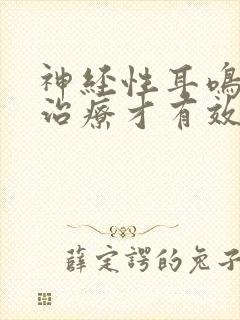 神经性耳鸣
治疗才有效
薛定谔的兔子